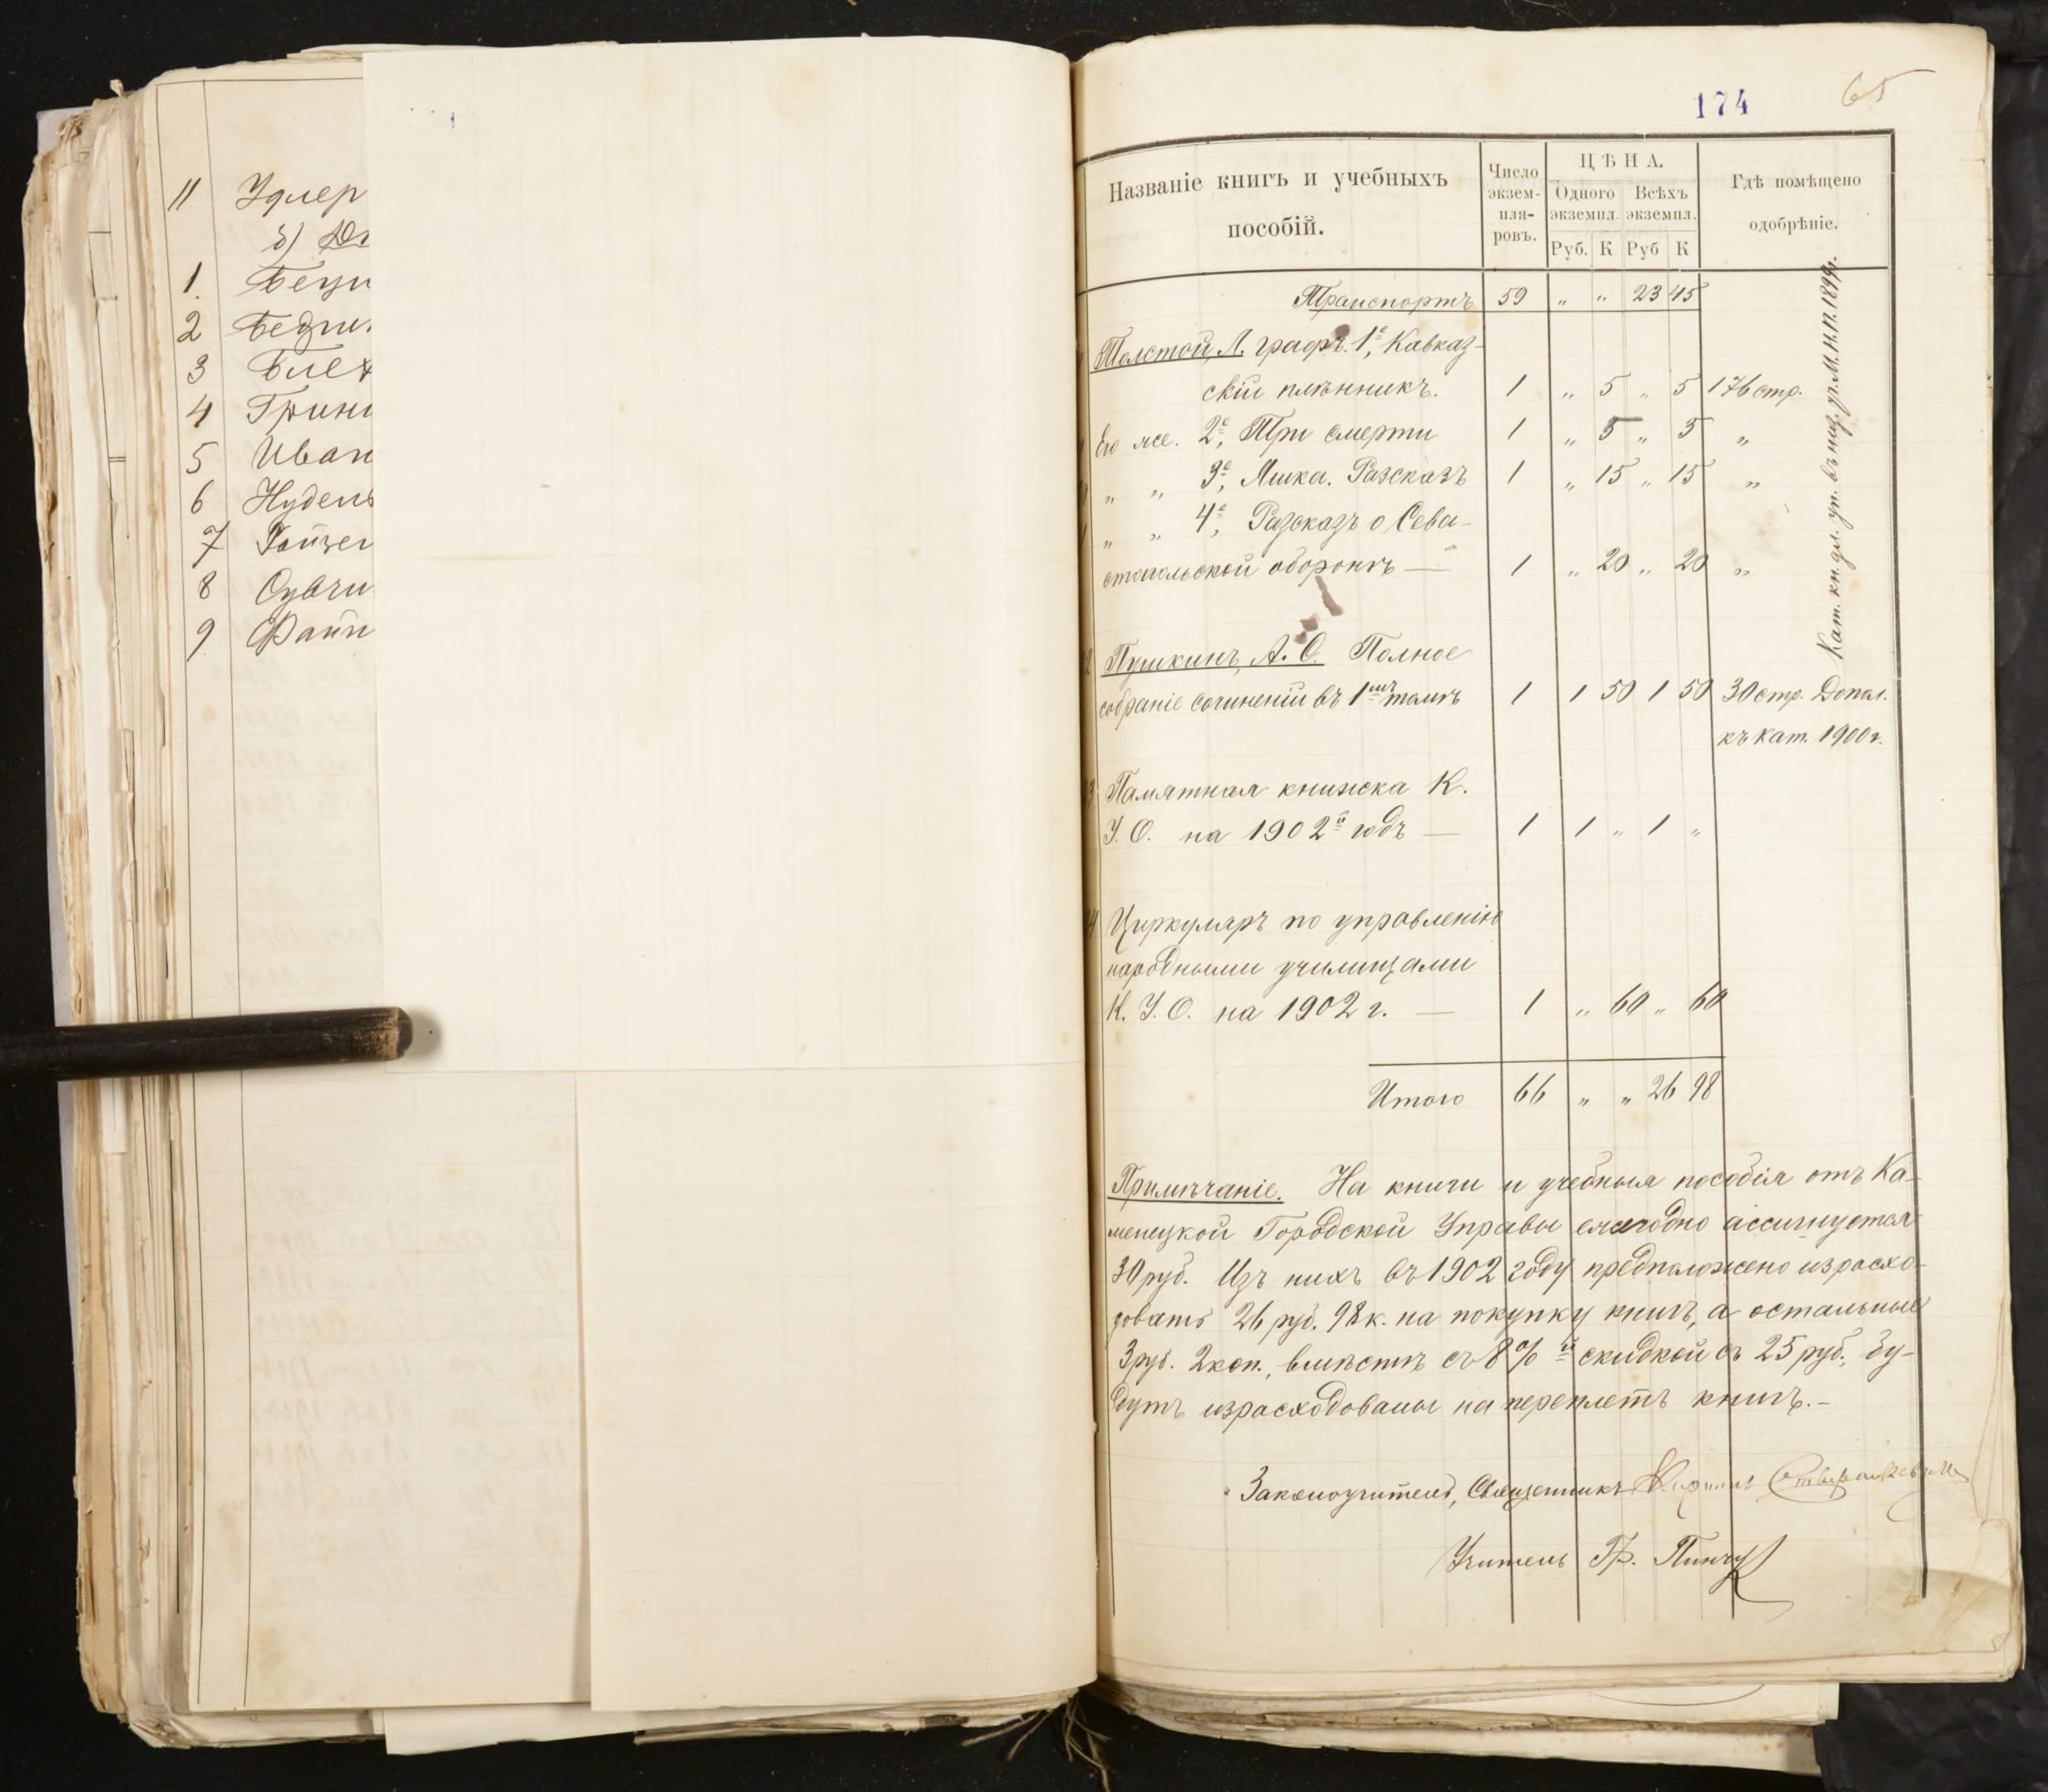 11 Удлер
б)
1. Бецн
2 Бедни
3
4 Грин
5 Иван
6 Нудель
7
8 Сувчи
9 Файн
174
65
Названіе книгъ и учебныхъ пособій.
Число экзем-пля-ровъ.
ЦѢНА.
Одного экземпл.
Всѣхъ экземпл.
Руб. К Руб К
Гдѣ помѣщено одобрѣніе.
Транспортъ 59 „ „ 23 45
Толстой, Л. графъ. 1е, Кавказ-
скій плѣнникъ. 1 „ 5 „ 5 176 стр.
Его же. 2е, Три смерти 1 „ 5 „ 5 „
„ „ 3е, Яшка. Разсказъ 1 „ 15 „ 15 „
„ „ 4е, Разсказъ о Сева-
стопольской оборонѣ — 1 „ 20 „ 20 „
Кат. кн. дл. уп. въ низ. уч. М.Н.П. 1899г.
Пушкинъ, А. С. Полное
собраніе сочиненій въ 1мъ томѣ 1 1 50 1 50 30 стр. Допол.
къ кат. 1900 г.
Памятная книжка К.
У. О. на 1902й годъ — 1 1 „ 1 „
Циркуляръ по управленію
народными училищами
К. У. О. на 1902 г. — 1 „ 60 „ 60
Итого 66 „ „ 26 98
Примѣчаніе. На книги и учебныя пособія отъ Ка-
менецкой Городской Управы ежегодно ассигнуется
30 руб. Изъ нихъ въ 1902 году предположено израсхо-
довать 26 руб. 98 к. на покупку книгъ, а остальные
3 руб. 2 коп., вмѣстѣ съ 8%й скидкой съ 25 руб., бу-
дутъ израсходованы на переплетъ книгъ.–
Законоучитель, Священникъ
Учитель Гр. Пинчук